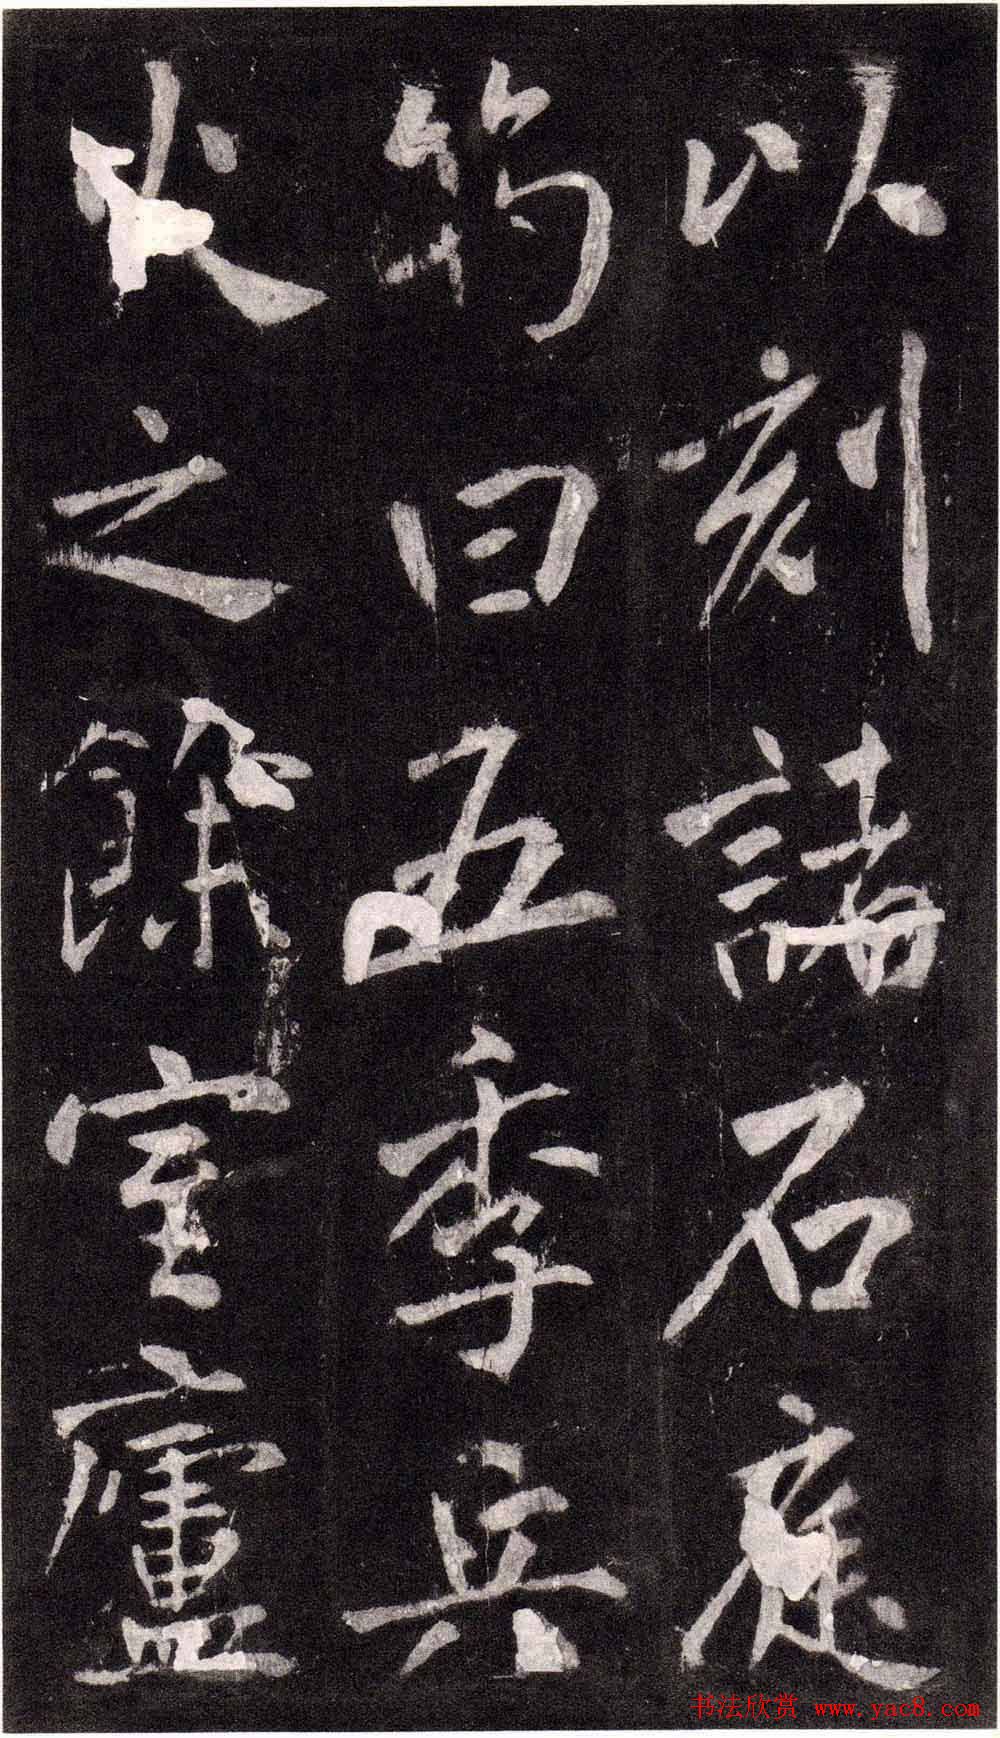 以刻諸石庭
筠曰五季兵
火之餘室廬
书法欣赏 www.yac8.com